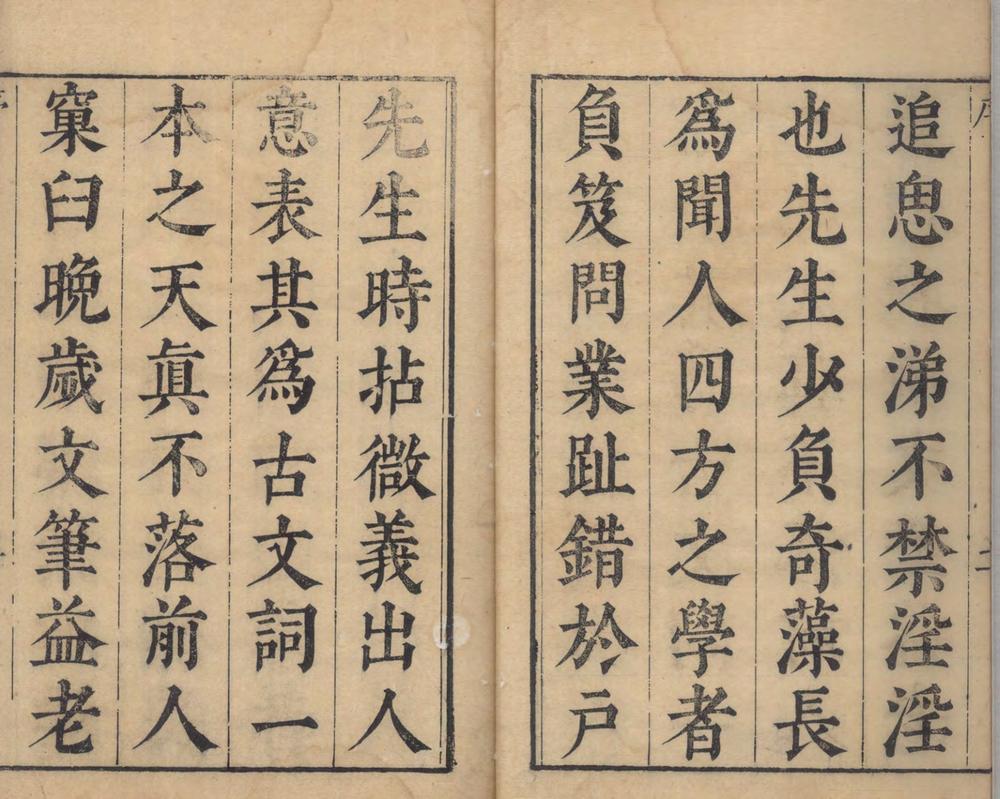 追思之涕不禁淫淫
也先生少負奇藻長
為聞人四方之學者
負笈問業趾錯於戶
先生時拈微義出人
意表其為古文詞一
本之天眞不落前人
窠臼晚歲文筆益老